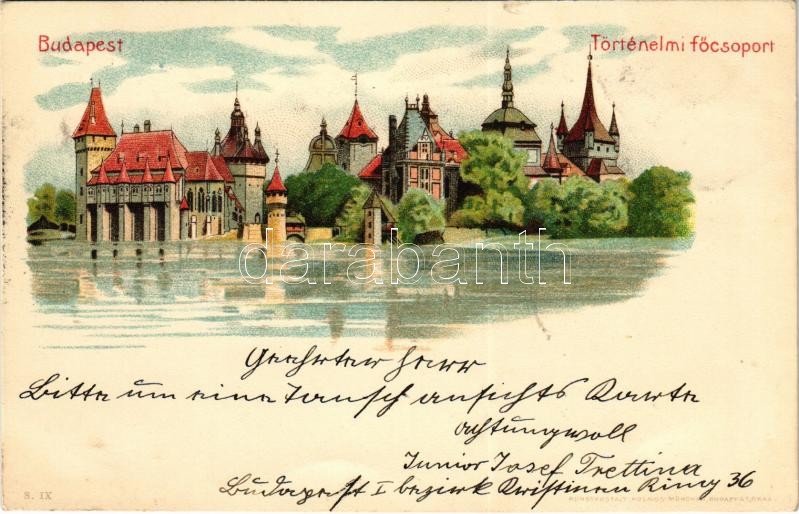 Budapest
Történelmi főcsoport
darabanth
Geehrter Herr
Bitte um eine Tausch ansichts Karte
achtungvoll
Junior Josef Trettina
Budapest I bezirk Kristinen Ring 36
S. IX
KUNSTANSTALT KOSMOS MÜNCHEN, BUDAPEST, GRAZ.